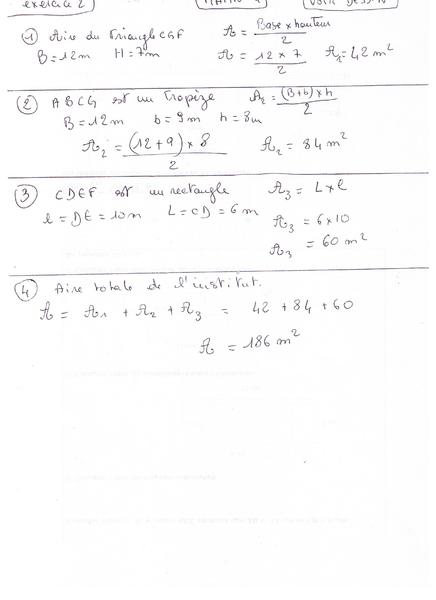 exercice 2
VOIR DESSIN
① Aire du Triangle CGF A = Base x hauteur / 2
B = 12m H = 7m A = 12 x 7 / 2 A1 = 42 m²
② ABCG est un Trapèze A2 = (B+b) x h / 2
B = 12m b = 9m h = 8m
A2 = (12 + 9) x 8 / 2 A2 = 84 m²
③ CDEF est un rectangle A3 = L x l
l = DE = 10m L = CD = 6 m A3 = 6 x 10
A3 = 60 m²
④ Aire totale de l'institut.
A = A1 + A2 + A3 = 42 + 84 + 60
A = 186 m²